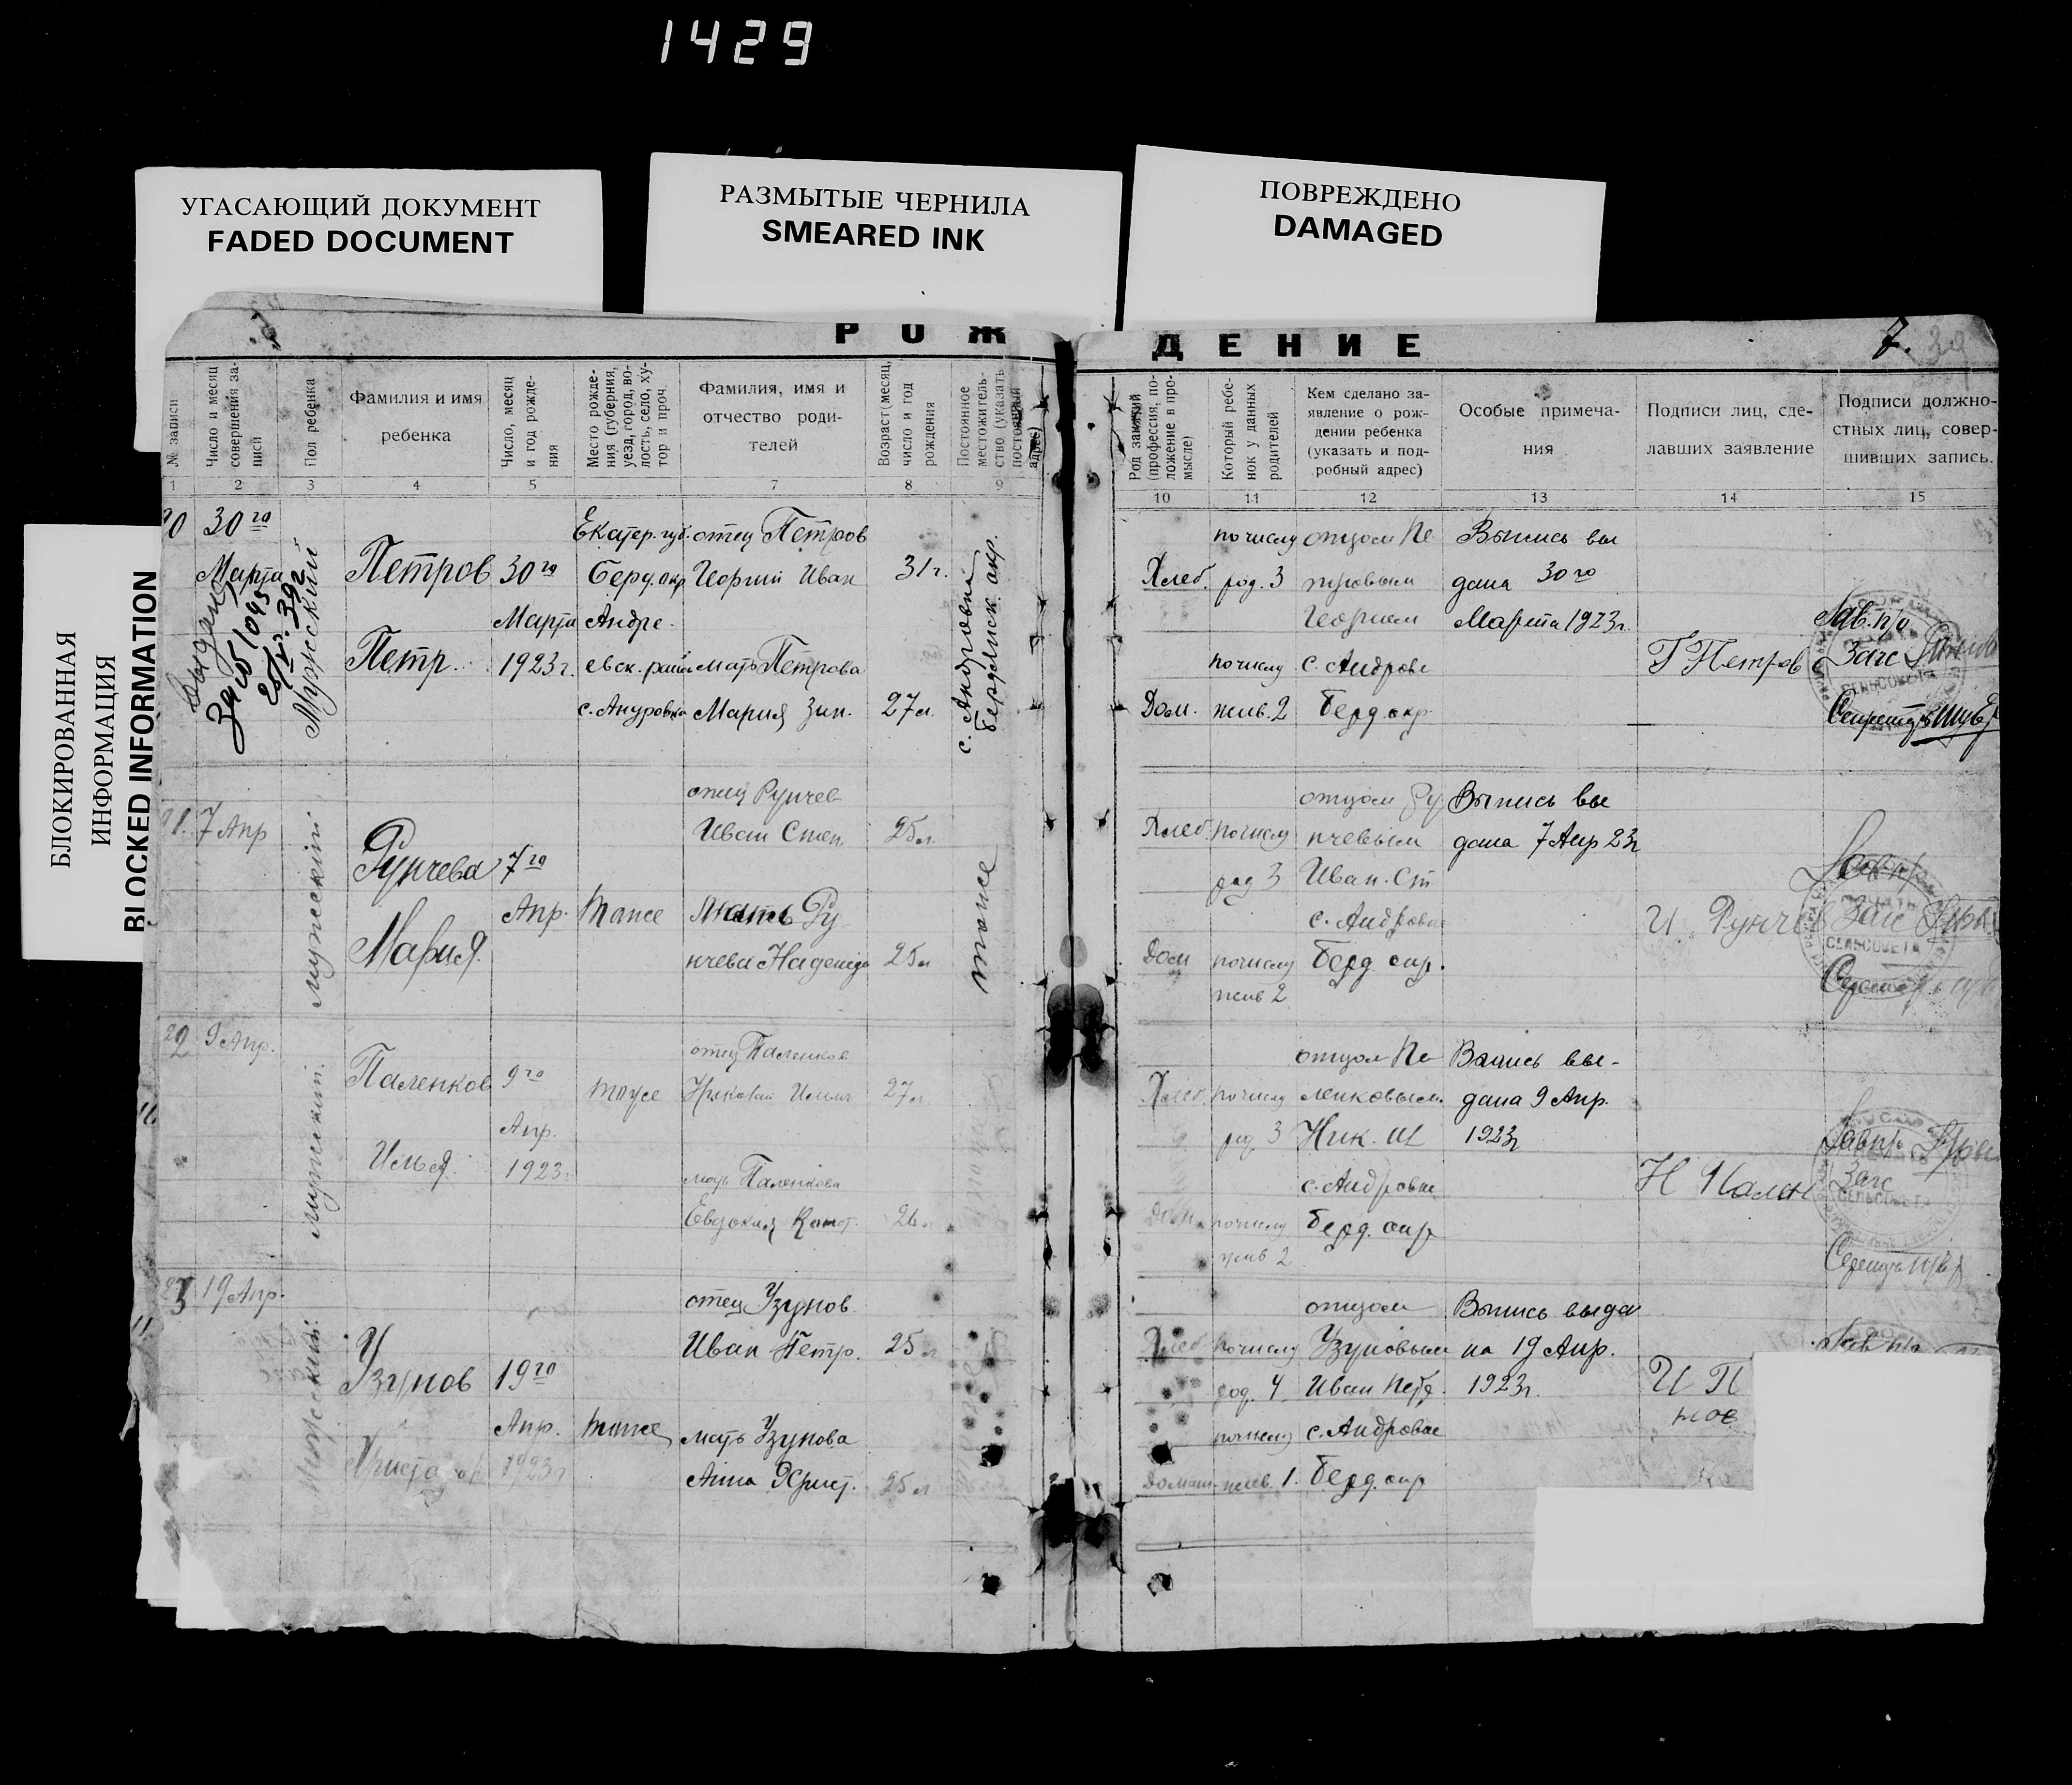 1429
УГАСАЮЩИЙ ДОКУМЕНТ
FADED DOCUMENT
РАЗМЫТЫЕ ЧЕРНИЛА
SMEARED INK
ПОВРЕЖДЕНО
DAMAGED
БЛОКИРОВАННАЯ
ИНФОРМАЦИЯ
BLOCKED INFORMATION
РОЖДЕНИЕ
7. 39
№ записи
Число и месяц
совершения за-
писй
Пол ребенка
Фамилия и имя
ребенка
Число, месяц
и год рожде-
ния
Место рожде-
ния (губерния,
уезд, город, во-
лость, село, ху-
тор и проч.
Фамилия, имя и
отчество роди-
телей
Возраст (месяц,
число и год
рождения
Постоянное
местожитель-
ство (указать
постоянный
адрес)
Род занятий
(профессия, по-
ложение в про-
мысле)
Который ребе-
нок у данных
родителей
Кем сделано за-
явление о рож-
дении ребенка
(указать и под-
робный адрес)
Особые примеча-
ния
Подписи лиц, сде-
лавших заявление
Подписи должно-
стных лиц, совер-
шивших запись.
1 2 3 4 5 6 7 8 9 10 11 12 13 14 15
30го
Марта
Мужеский
Петров
Петр
30го
Марта
1923 г.
Екатер. губ.
Берд. окр
Андре-
евск. район
отец Петров
Георгий Иван
31 г.
мать Петрова
Мария
27 л.
с. Андровка
Бердянск. окр.
Хлеб.
по числу
род. 3
Дом.
по числу
жив. 2
отцом Пе
тровым
Георгием
с. Андровк
Берд. окр.
Выпись вы
дана 30го
Марта 1923 г.
Г Петров
7 Апр
мужеский
Рунчева
Мария
7го
Апр.
тоже
отец Рунчев
Иван Степ.
25 л.
мать Ру
нчева Надежда
25 л
тоже
Хлеб.
по числу
род 3
Дом
по числу
жив 2
отцом Ру
нчевым
Иван. Ст
с. Андровк
Берд. окр.
Выпись вы
дана 7 Апр 23 г
И. Рунчев
22
9 Апр.
мужеский.
Паленков
Илья
9го
Апр.
1923 г
тоже
отец Паленков
27 л
мать Паленкова
Евдокия Конст.
26 л
Хлеб.
по числу
род 3
Дом.
по числу
жив 2
отцом Па
ленковым.
Ник. Ил
с. Андровке
Берд. окр
Выпись вы-
дана 9 Апр.
1923 г
Н Пален
19 Апр.
Мужеский.
Узунов
19го
Апр.
1923 г
тоже
отец Узунов
Иван Петр.
25 л
мать Узунова
Анна Христ.
25 л
Хлеб
по числу
род. 4
Домаш.
по числу
жив. 1.
отцом
Узуновым
Иван Петр.
с. Андровке
Берд. окр
Выпись выда
на 19 Апр.
1923 г.